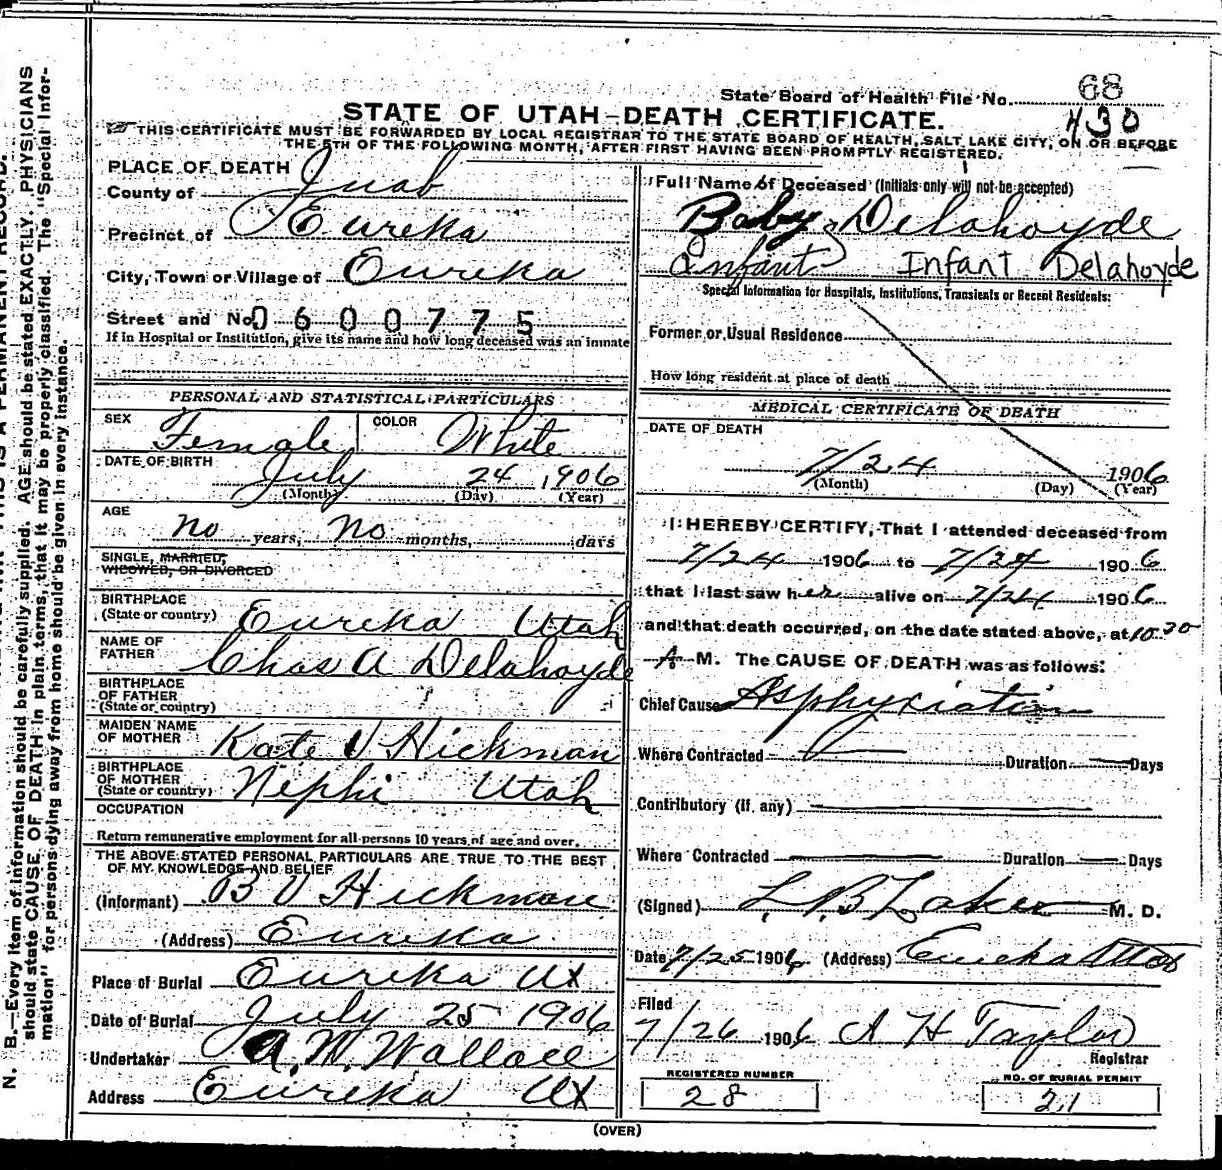 State Board of Health File No. 68
STATE OF UTAH—DEATH CERTIFICATE. 430
THIS CERTIFICATE MUST BE FORWARDED BY LOCAL REGISTRAR TO THE STATE BOARD OF HEALTH, SALT LAKE CITY, ON OR BEFORE
THE 5TH OF THE FOLLOWING MONTH, AFTER FIRST HAVING BEEN PROMPTLY REGISTERED.
PLACE OF DEATH
County of Juab
Precinct of Eureka
City, Town or Village of Eureka
Street and No. 0600775
If in Hospital or Institution, give its name and how long deceased was an inmate
PERSONAL AND STATISTICAL PARTICULARS
SEX Female COLOR White
DATE OF BIRTH July 24, 1906
(Month) (Day) (Year)
AGE
no years, no months, days
SINGLE, MARRIED,
WIDOWED, OR DIVORCED
BIRTHPLACE
(State or country) Eureka Utah
NAME OF
FATHER Chas A Delahoyde
BIRTHPLACE
OF FATHER
(State or country)
MAIDEN NAME
OF MOTHER Kate V Hickman
BIRTHPLACE
OF MOTHER
(State or country) Nephi Utah
OCCUPATION
Return remunerative employment for all persons 10 years of age and over.
THE ABOVE STATED PERSONAL PARTICULARS ARE TRUE TO THE BEST
OF MY KNOWLEDGE AND BELIEF
(Informant) B V Hickman
(Address) Eureka
Place of Burial Eureka Ut
Date of Burial July 25 1906
Undertaker A. W. Wallace
Address Eureka Ut
Full Name of Deceased (Initials only will not be accepted)
Baby Delahoyde
Infant Infant Delahoyde
Special Information for Hospitals, Institutions, Transients or Recent Residents:
Former or Usual Residence
How long resident at place of death
MEDICAL CERTIFICATE OF DEATH
DATE OF DEATH
7/24 1906
(Month) (Day) (Year)
I HEREBY CERTIFY, That I attended deceased from
7/24 1906 to 7/24 1906
that I last saw her alive on 7/24 1906
and that death occurred, on the date stated above, at 10 30
A M. The CAUSE OF DEATH was as follows:
Chief Cause Asphyxiation
Where Contracted Duration Days
Contributory (if any)
Where Contracted Duration Days
(Signed) M. D.
Date 7/25 1906 (Address) Eureka Utah
Filed
7/26 1906 A H Taylor
Registrar
REGISTERED NUMBER
28
NO. OF BURIAL PERMIT
21
(OVER)
N. B.—Every item of information should be carefully supplied. AGE should be stated EXACTLY. PHYSICIANS
should state CAUSE OF DEATH in plain terms, that it may be properly classified. The "Special Infor-
mation" for persons dying away from home should be given in every instance.